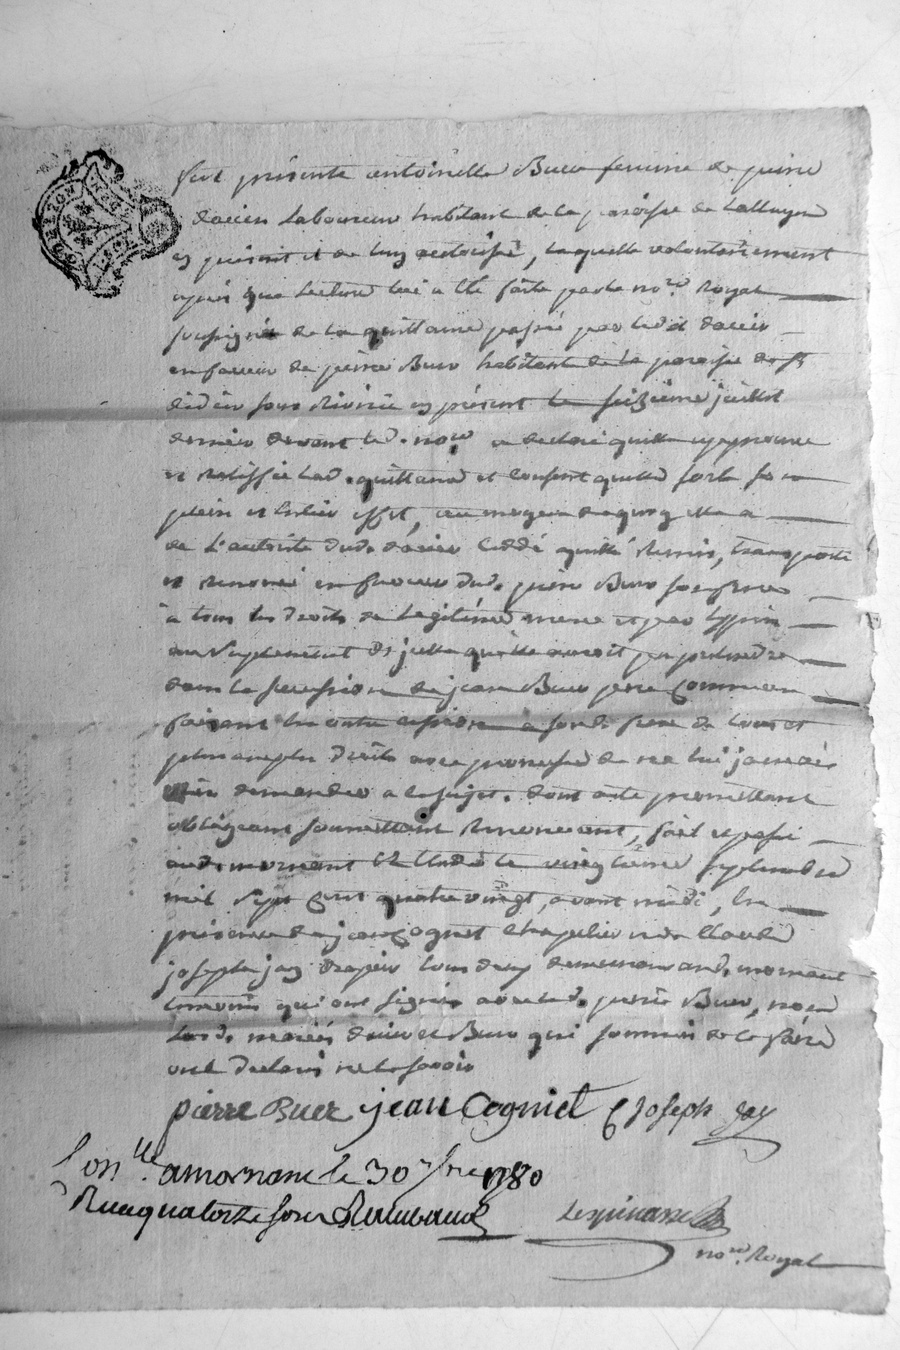 fut présente antoinette Buer femme de pierre
dacier Laboureur habitant de la paroisse de Talluyer
cy présent et de luy autorisé, laquelle volontairement
après que lecture lui a été faite par le no.re Royal
soussigné de la quittance passée par led dacier
en faveur de pierre Buer habitant de la paroisse de St
didier sous Riverie cy présent le seizieme juillet
dernier devant led. no.re a declaré qu'elle approuve
et ratiffie lad. quittance et consent qu'elle sorte son
plein et entier effet, au moyen de quoy elle a
de L'autorité dud. dacier cedde quitté Remis, transporté
et renoncé en faveur dud. pierre Buer son frere
à tous les droits de Legitime
au suplement d'icelle qu'elle auroit pu pretendre
dans la succession de jean Buer pere commun
faisant en outre cession à son d. frere de tous et
plus amples droits avec promesse de ne lui jamais
rien demander a ce sujet. dont acte promettant
obligeant soumettant Renoncant, fait et passé
aud. mornant Etude le vingtieme septembre
mil sept cent quatre vingt, avant midi, En
présence de jean Cogniet Chapelier et de Claude
joseph jay drapier tous deux demeurant aud. mornant
temoins qui ont signés avec led. pierre Buer, non
Les d. mariés dacier et Buer qui sommés de le faire
ont declaré ne le savoir
pierre Buer jean Cogniet C Joseph Jay
Con.lle a mornant le 30 7bre 1780
Recu quatorze sous
Lespinasse
no.re Royal